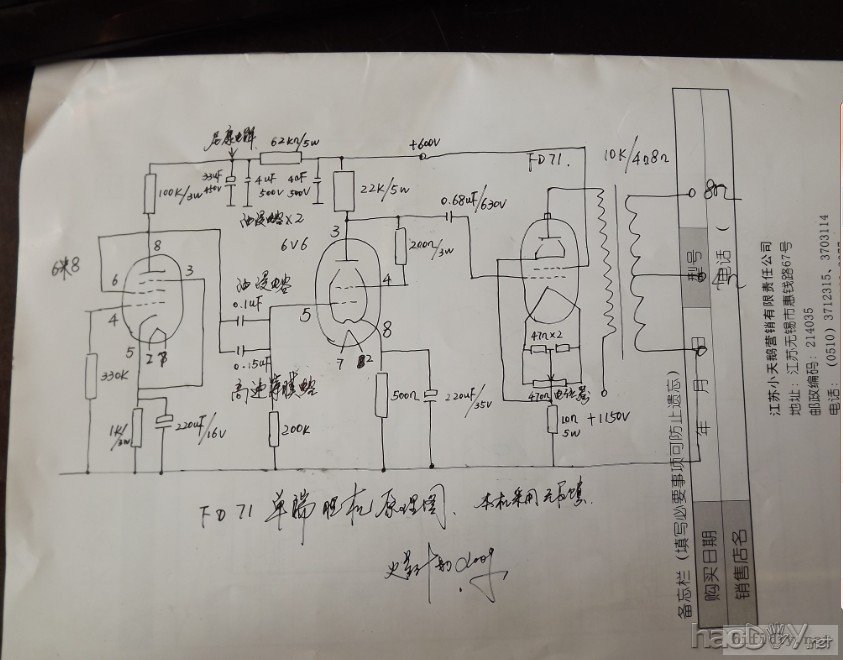 62kΩ/5W
+600V
FD71.
10K/4Ω8Ω
100K/3W
33uF
450V
4uF
500V
4uF
500V
22K/5W
0.68uF/630V
8Ω
油浸电容×2
6V6
200Ω/3W
6米8
8
6
3
4
5
3
4
5
8
7
油浸电容
0.1uF
0.15uF
47Ω×2
470Ω
10Ω
5W
+1150V
330K
1K/3W
220uF/16V
200K
500Ω
220uF/35V
FD71 单端胆机原理图. 本机采用无负馈.
备忘栏（填写必要事项可防止遗忘）
购买日期
年 月 日
型号
销售店名
电话（
江苏小天鹅营销有限责任公司
地址：江苏无锡市惠钱路67号
邮政编码：214035
电话：（0510）3712315、3703114